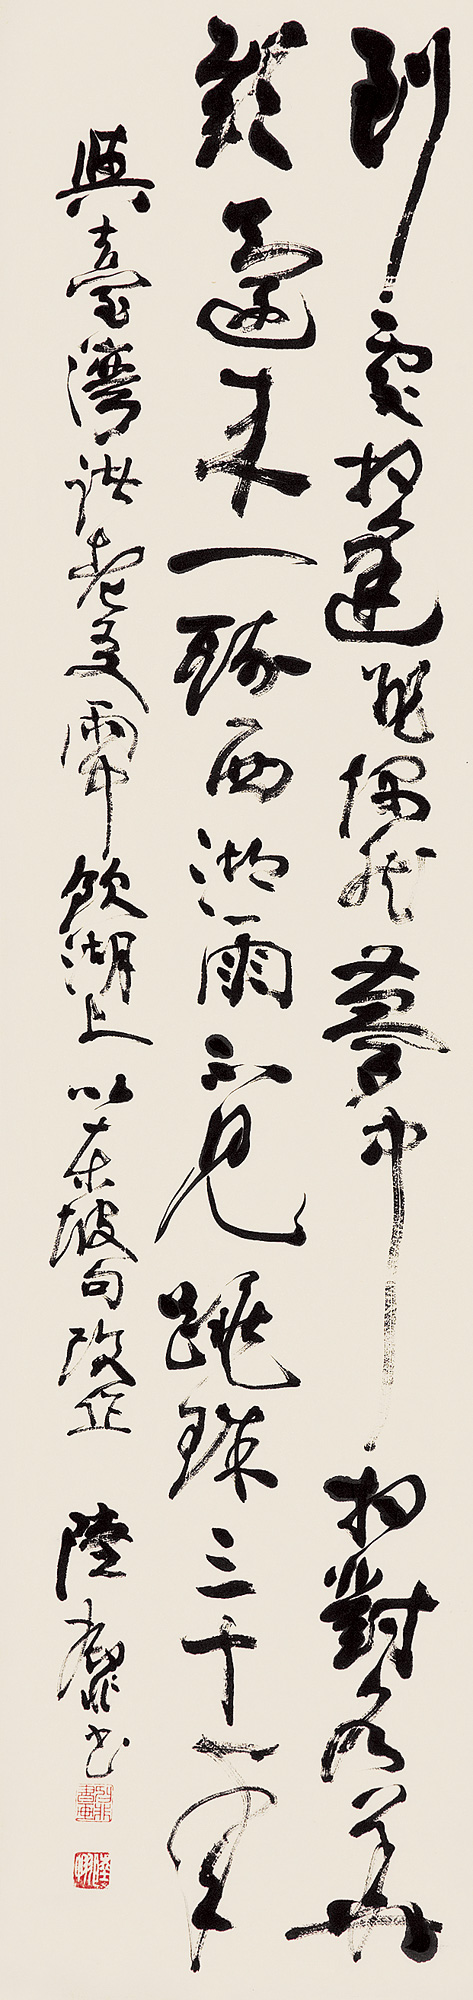 到處相逢非偶然夢中相對各華
顛還來一醉西湖雨不見跳珠三十年
與臺灣諸老友雨中飲湖上以東坡句改作 陸抑非書